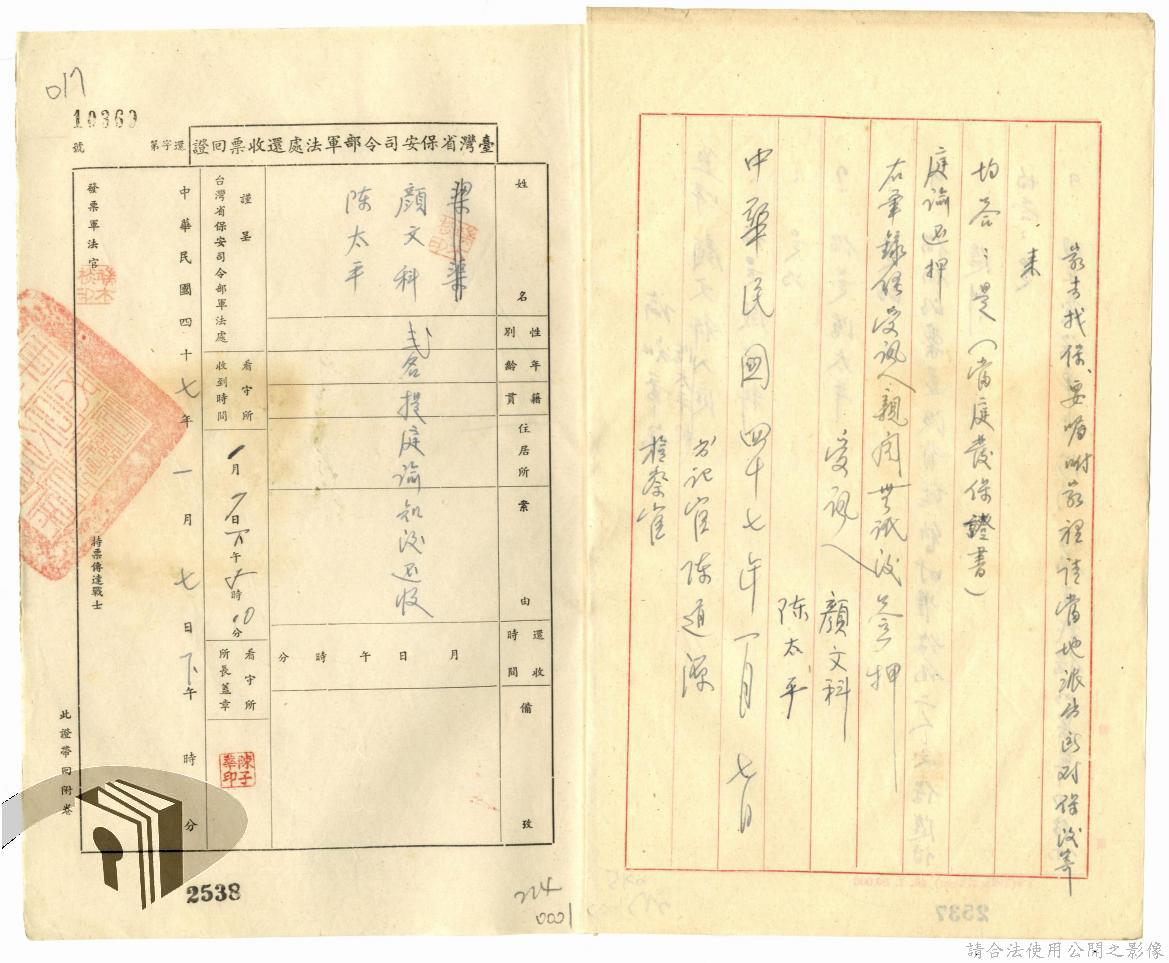 家去找保、要嘱咐家裡請當地派出所对保後寄
來
均答：是（當庭發保證書）
庭諭还押
右筆錄經受訊人親閱無訛後簽押
受訊人 顏文科
陈太平
中華民國四十七年一月七日
书记官 陈道源
检察官
017
10369
號
還字第
臺灣省保安司令部軍法處還收票回證
姓名
性別
年齡
籍貫
住居所
案由
還收時間
備攷
顏文科
陈太平
弍名提庭諭知後还收
月 日 午 時 分
謹呈
台灣省保安司令部軍法處
看守所收到時間
月 日 午 時 分
看守所所長蓋章
陳子華印
中華民國四十七年一月七日下午 時 分
發票軍法官
持票傳達戰士
此證帶回附卷
2538
224
0001
2537
請合法使用公開之影像